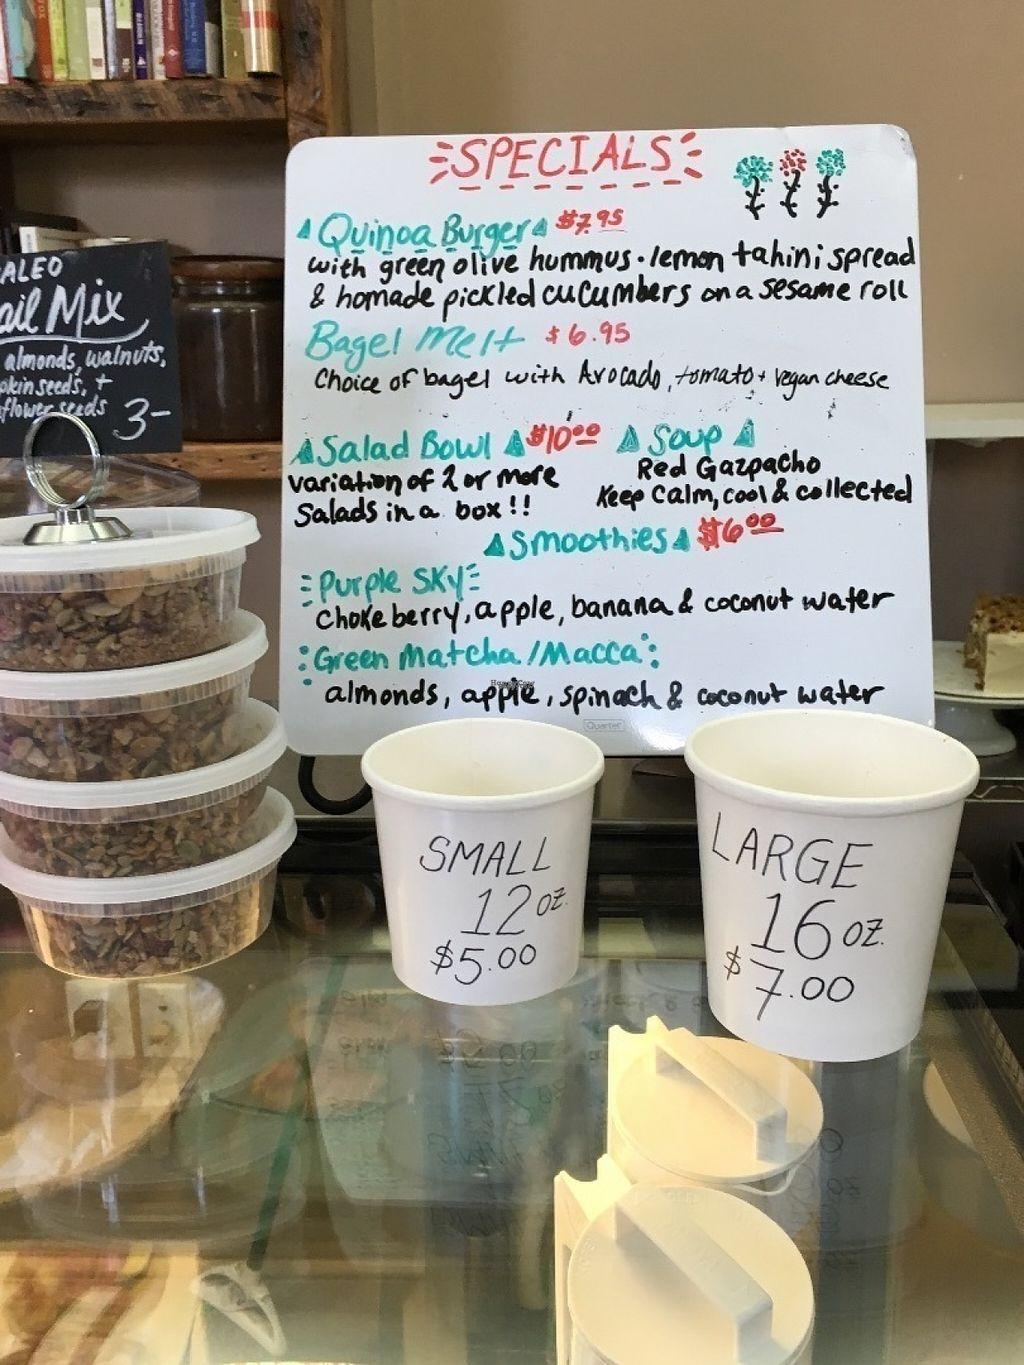 SPECIALS
Quinoa Burger $7.95
with green olive hummus • lemon tahini spread
& homade pickled cucumbers on a sesame roll
Bagel Melt $6.95
Choice of bagel with Avocado, tomato + vegan cheese
Salad Bowl $10.00
variation of 2 or more
Salads in a box!!
Soup
Red Gazpacho
Keep Calm, cool & collected
Smoothies $6.00
Purple Sky
Chokeberry, apple, banana & coconut water
Green Matcha/Macca
almonds, apple, spinach & coconut water
HappyCow
Quartet
ALEO
ail Mix
almonds, walnuts,
pkin seeds, +
flower seeds
3-
SMALL
12 oz.
$5.00
LARGE
16 oz.
$7.00